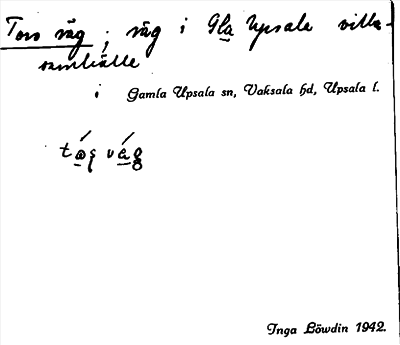 Tors väg ; väg i Gla Upsala villa-
samhälle
i Gamla Upsala sn, Vaksala hd, Upsala l.
Inga Löwdin 1942.